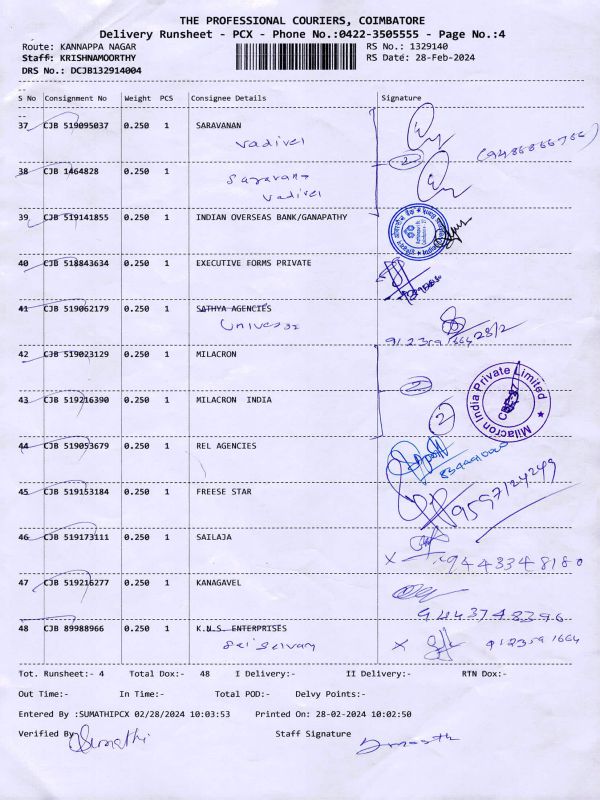 THE PROFESSIONAL COURIERS, COIMBATORE
Delivery Runsheet - PCX - Phone No.:0422-3505555 - Page No.:4
Route: KANNAPPA NAGAR RS No.: 1329140
Staff: KRISHNAMOORTHY RS Date: 28-Feb-2024
DRS No.: DCJB132914004
S No Consignment No Weight PCS Consignee Details Signature
37 CJB 519095037 0.250 1 SARAVANAN
Vadivel
2
38 CJB 1464828 0.250 1
Saravana
Vadivel
39 CJB 519141855 0.250 1 INDIAN OVERSEAS BANK/GANAPATHY
40 CJB 518843634 0.250 1 EXECUTIVE FORMS PRIVATE
41 CJB 519062179 0.250 1 SATHYA AGENCIES
28/2
42 CJB 519023129 0.250 1 MILACRON
2
Milacron India Private Limited
43 CJB 519216390 0.250 1 MILACRON INDIA
2
44 CJB 519053679 0.250 1 REL AGENCIES
45 CJB 519153184 0.250 1 FREESE STAR
9597124249
46 CJB 519173111 0.250 1 SAILAJA
X 9443348180
47 CJB 519216277 0.250 1 KANAGAVEL
9443748396
48 CJB 89988966 0.250 1 K.N.S. ENTERPRISES
Sri Selvam X 9123591664
Tot. Runsheet:- 4 Total Dox:- 48 I Delivery:- II Delivery:- RTN Dox:-
Out Time:- In Time:- Total POD:- Delvy Points:-
Entered By :SUMATHIPCX 02/28/2024 10:03:53 Printed On: 28-02-2024 10:02:50
Verified By Sumathi Staff Signature